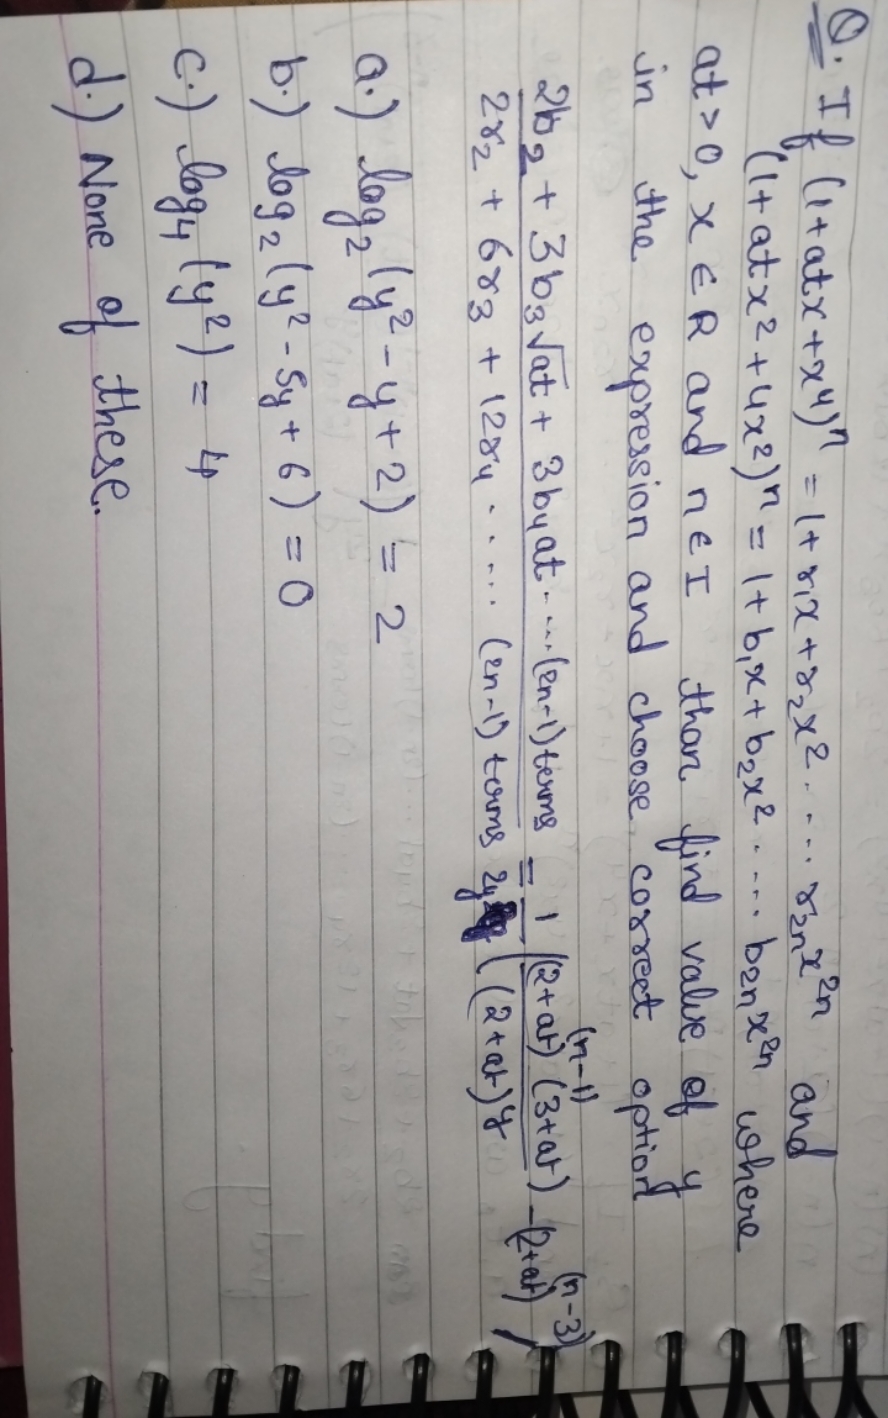 Q. If (1+atx+x⁴)ⁿ = 1+r₁x+r₂x² ..... r₂ₙx²ⁿ and
(1+atx²+4x²)ⁿ = 1+b₁x+b₂x² .... b₂ₙx²ⁿ where
at>0, x ∈ R and n ∈ I than find value of y
in the expression and choose correct option
2b₂ + 3b₃√at + 3b₄at.....(2n-1)terms = 1 ((2+at)⁽ⁿ⁻¹⁾(3+at) - (2+at)⁽ⁿ⁻³⁾)
2r₂ + 6r₃ + 12r₄ ...... (2n-1) terms 2y ((2+at)ʸ
a.) log₂ (y² - y + 2) = 2
b.) log₂ (y² - 5y + 6) = 0
c.) log₄ (y²) = 4
d.) None of these.